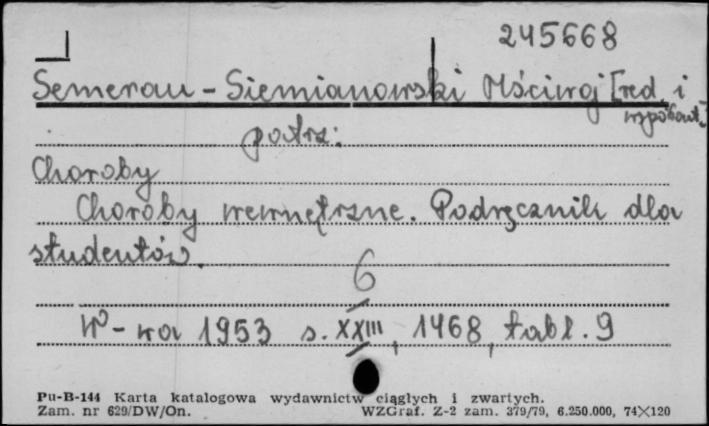 245668
Semerau-Siemianowski Mściwoj [red. i
współaut.]
patrz:
Choroby
Choroby wewnętrzne. Podręcznik dla
studentów.
6
W-wa 1953 s. XXIII, 1468, tabl. 9
Pu-B-144 Karta katalogowa wydawnictw ciągłych i zwartych.
Zam. nr 629/DW/On. WZGraf. Z-2 zam. 379/79, 6.250.000, 74×120